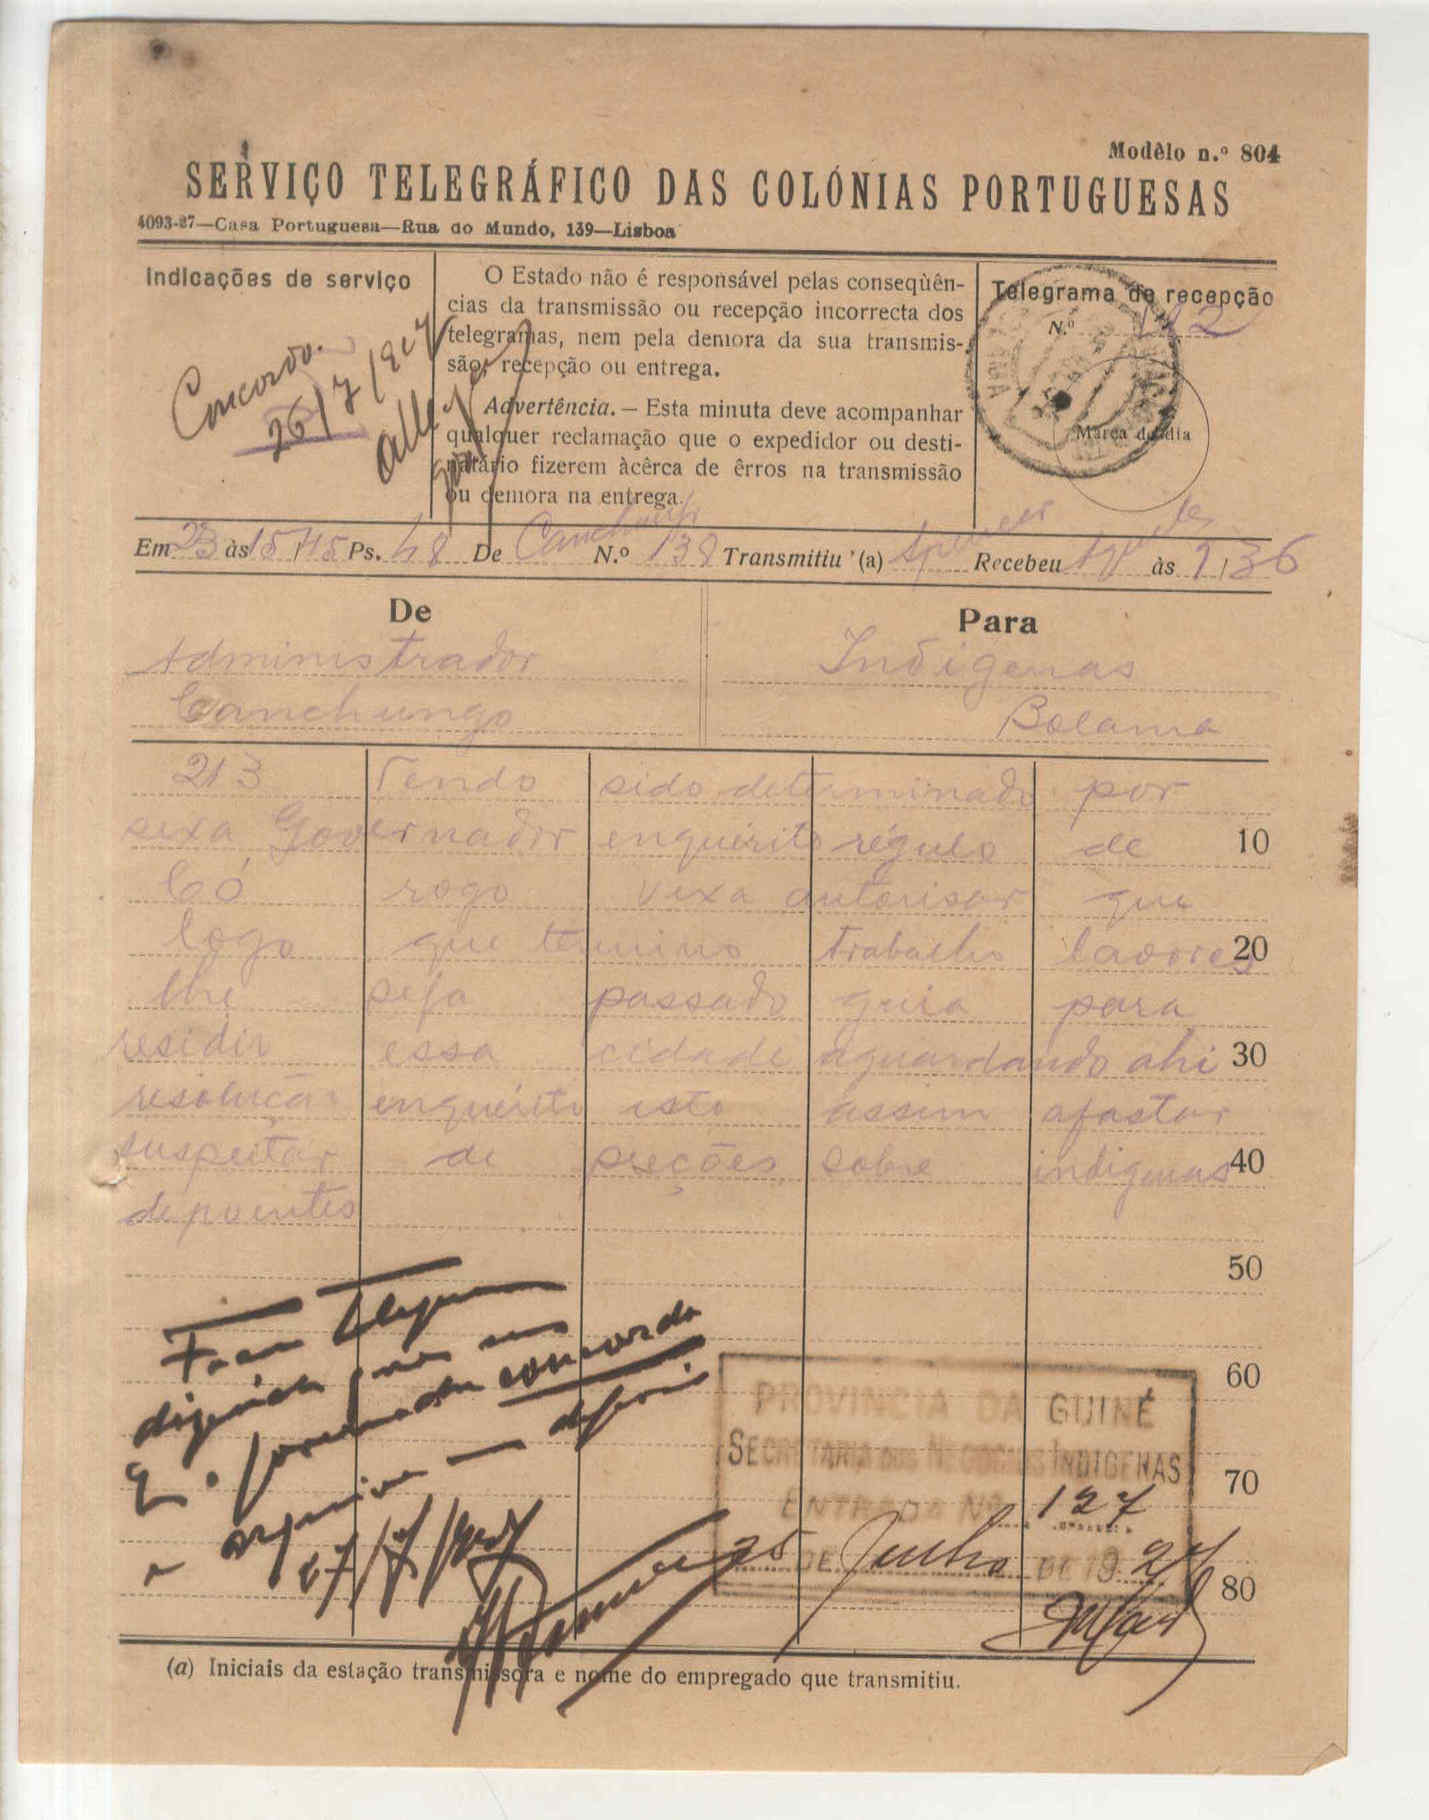 Modêlo n.º 804
SERVIÇO TELEGRÁFICO DAS COLÓNIAS PORTUGUESAS
4093-27—Casa Portuguesa—Rua do Mundo, 139—Lisboa
Indicações de serviço
Concordo.
26/7/927
O Estado não é responsável pelas conseqüên-
cias da transmissão ou recepção incorrecta dos
telegramas, nem pela demora da sua transmis-
são, recepção ou entrega.
Advertência. — Esta minuta deve acompanhar
qualquer reclamação que o expedidor ou desti-
natário fizerem àcêrca de êrros na transmissão
ou demora na entrega.
Telegrama de recepção
N.º
Marca do dia
Em 23 às 15 45 Ps. 48 De Canchungo N.º 138 Transmitiu (a) Recebeu às 9 36
De
Administrador
Canchungo
Para
Indigenas
Bolama
213 Tendo sido determinado por
sexa Governador enquerito régulo de 10
Có rogo vexa autorisar que
logo que termino trabalho lavores 20
lhe seja passado guia para
residir essa cidade aguardando ahi 30
resolução enquerito isto assim afastar
suspeitar de preções sobre indigenas 40
depoentes
50
60
70
80
concorda
depois
27/7/927
PROVINCIA DA GUINÉ
SECRETARIA DOS NEGOCIOS INDIGENAS
ENTRADA Nº 127
25 DE Julho DE 1927
(a) Iniciais da estação transmissora e nome do empregado que transmitiu.